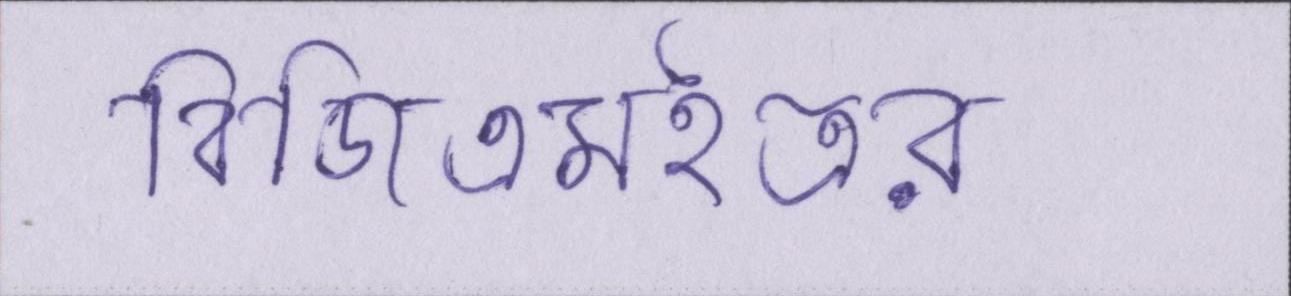 বিজিএমইএর